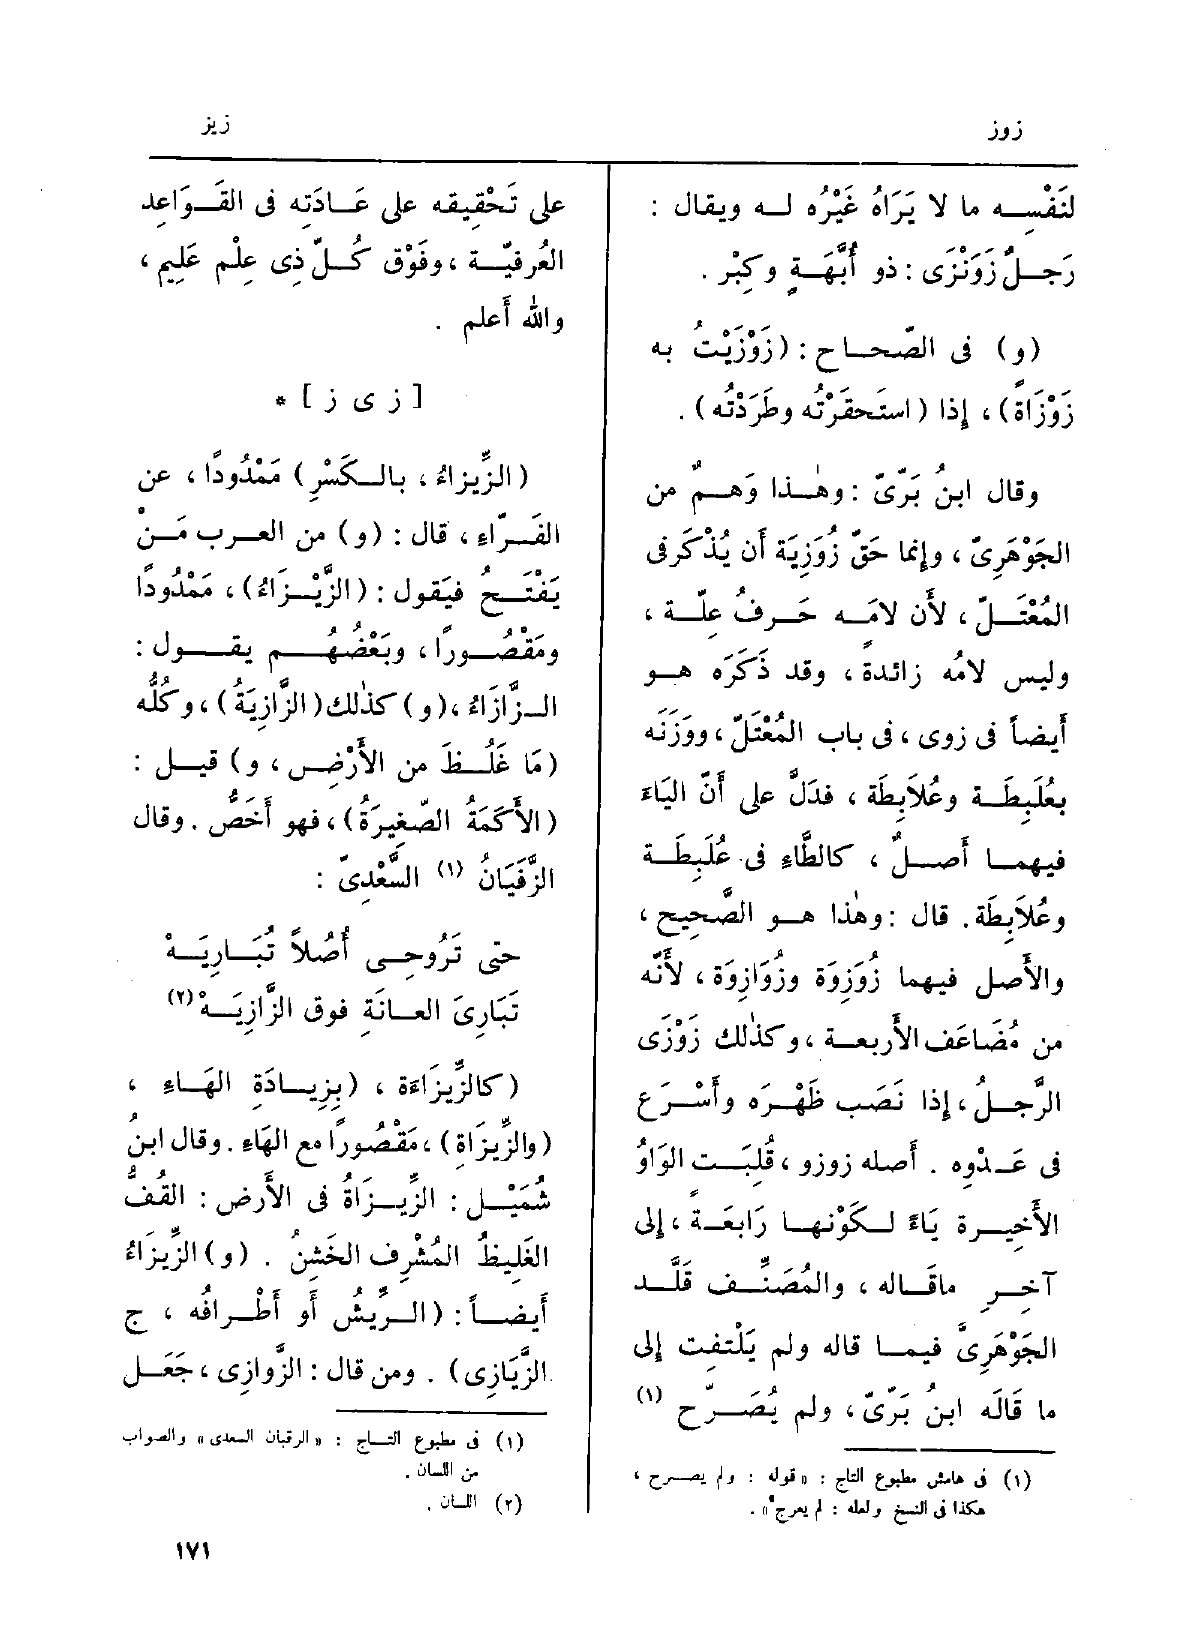 زوز
زيز
لنَفْسِـه ما لا يَرَاهُ غَيْرُه لـه ويقال :
رَجـلٌ زَوَنْزَى : ذو أُبَّهَـةٍ وكِبْر .
(و) فى الصّحـاح : (زَوْزَيْتُ به
زَوْزَاةً) ، إذا (استَحقَرْتُه وطَرَدْتُه) .
وقال ابنُ بَرّىّ : وهٰـذا وَهـمٌ من
الجَوْهَرِىّ ، وإنما حَقّ زُوَزِيَة أن يُذْكَر فى
المُعْتَـلّ ، لأن لامَـه حَـرفُ عِلّـة ،
وليس لامُه زائدةً ، وقد ذَكَرَه هـو
أيضاً فى زوى ، فى باب المُعْتَلّ ، ووَزَنَه
بعُلَبِطَـة وعُلَابِطَة ، فدَلَّ على أنّ اليَاءَ
فيهمـا أصـلٌ ، كالطَّاءِ فى عُلَبِطَـة
وعُلَابِطَة. قال : وهٰذا هـو الصَّحِيح ،
والأَصل فيهما زُوَزِوَة وزُوَازِوَة ، لأَنَّه
من مُضَاعَف الأَربعـة ، وكذٰلك زَوْزَى
الرَّجـلُ ، إذا نَصَب ظَهْـرَه وأَسْـرَع
فى عَـدْوِه . أصله زوزو ، قُلِبَـت الوَاوُ
الأَخِيـرة يَاءً لـكَوْنهـا رَابعَـةً ، إلى
آخـرِ ماقَـاله ، والمُصَنِّـف قَلَّـد
الجَوْهَرِىَّ فيمـا قاله ولم يَلْتفِت إلى
ما قَالَه ابنُ بَرّىّ ، ولم يُصَـرِّح (١)
(١) فى هامش مطبوع التاج : « قوله : ولم يصـرح ،
هكذا فى النسخ ولعله : لم يعرج » .
على تَحْقِيقه على عَـادَتِه فى القَـوَاعِد
العُرفيّـة ، وفَوْق كُـلّ ذِى عِلْم عَلِيم ،
والله أَعلم .
[ ز ى ز ] *
(الزِّيزاءُ ، بالـكَسْرِ) مَمْدُودًا ، عن
الفَـرّاءِ ، قال : (و) من العـرب مَـنْ
يَفْتَـحُ فيَقول : (الزَّيْـزَاءُ) ، مَمْدُودًا
ومَقْصُـورًا ، وبَعْضُهـم يقـول :
الـزَّازَاءُ ، (و) كذٰلك (الزَّازِيَةُ) ، وكُلُّه
(مَا غَلُـظَ من الأَرْضِ ، و) قيـل :
(الأَكَمَةُ الصّغِيرَةُ) ، فهو أَخَصُّ . وقال
الزَّفَيَانُ (١) السَّعْدِىّ :
حتى تَرُوحِـى أُصُلاً تُبَـارِيَـهْ
تَبَارِىَ العـانَةِ فوق الزَّازِيَـهْ (٢)
(كالزِّيزَاءَة ، (بِزِيـادَةِ الهَـاءِ ،
(والزِّيزَاة) ، مَقْصُورًا مع الهَاءِ . وقال ابنُ
شُمَيْـل : الزِّيـزَاةُ فى الأَرض : القُفُّ
الغَلِيظُ المُشْرِف الخَشنُ . (و) الزِّيزَاءُ
أَيضـاً : (الـرِّيشُ أَو أَطْـرافُه ، ج
الزَّيَازِى) . ومن قال : الزَّوازِى ، جَعَـل
(١) فى مطبوع التـاج : « الرقبان السعدى » والصواب
من اللسان .
(٢) اللسان .
١٧١